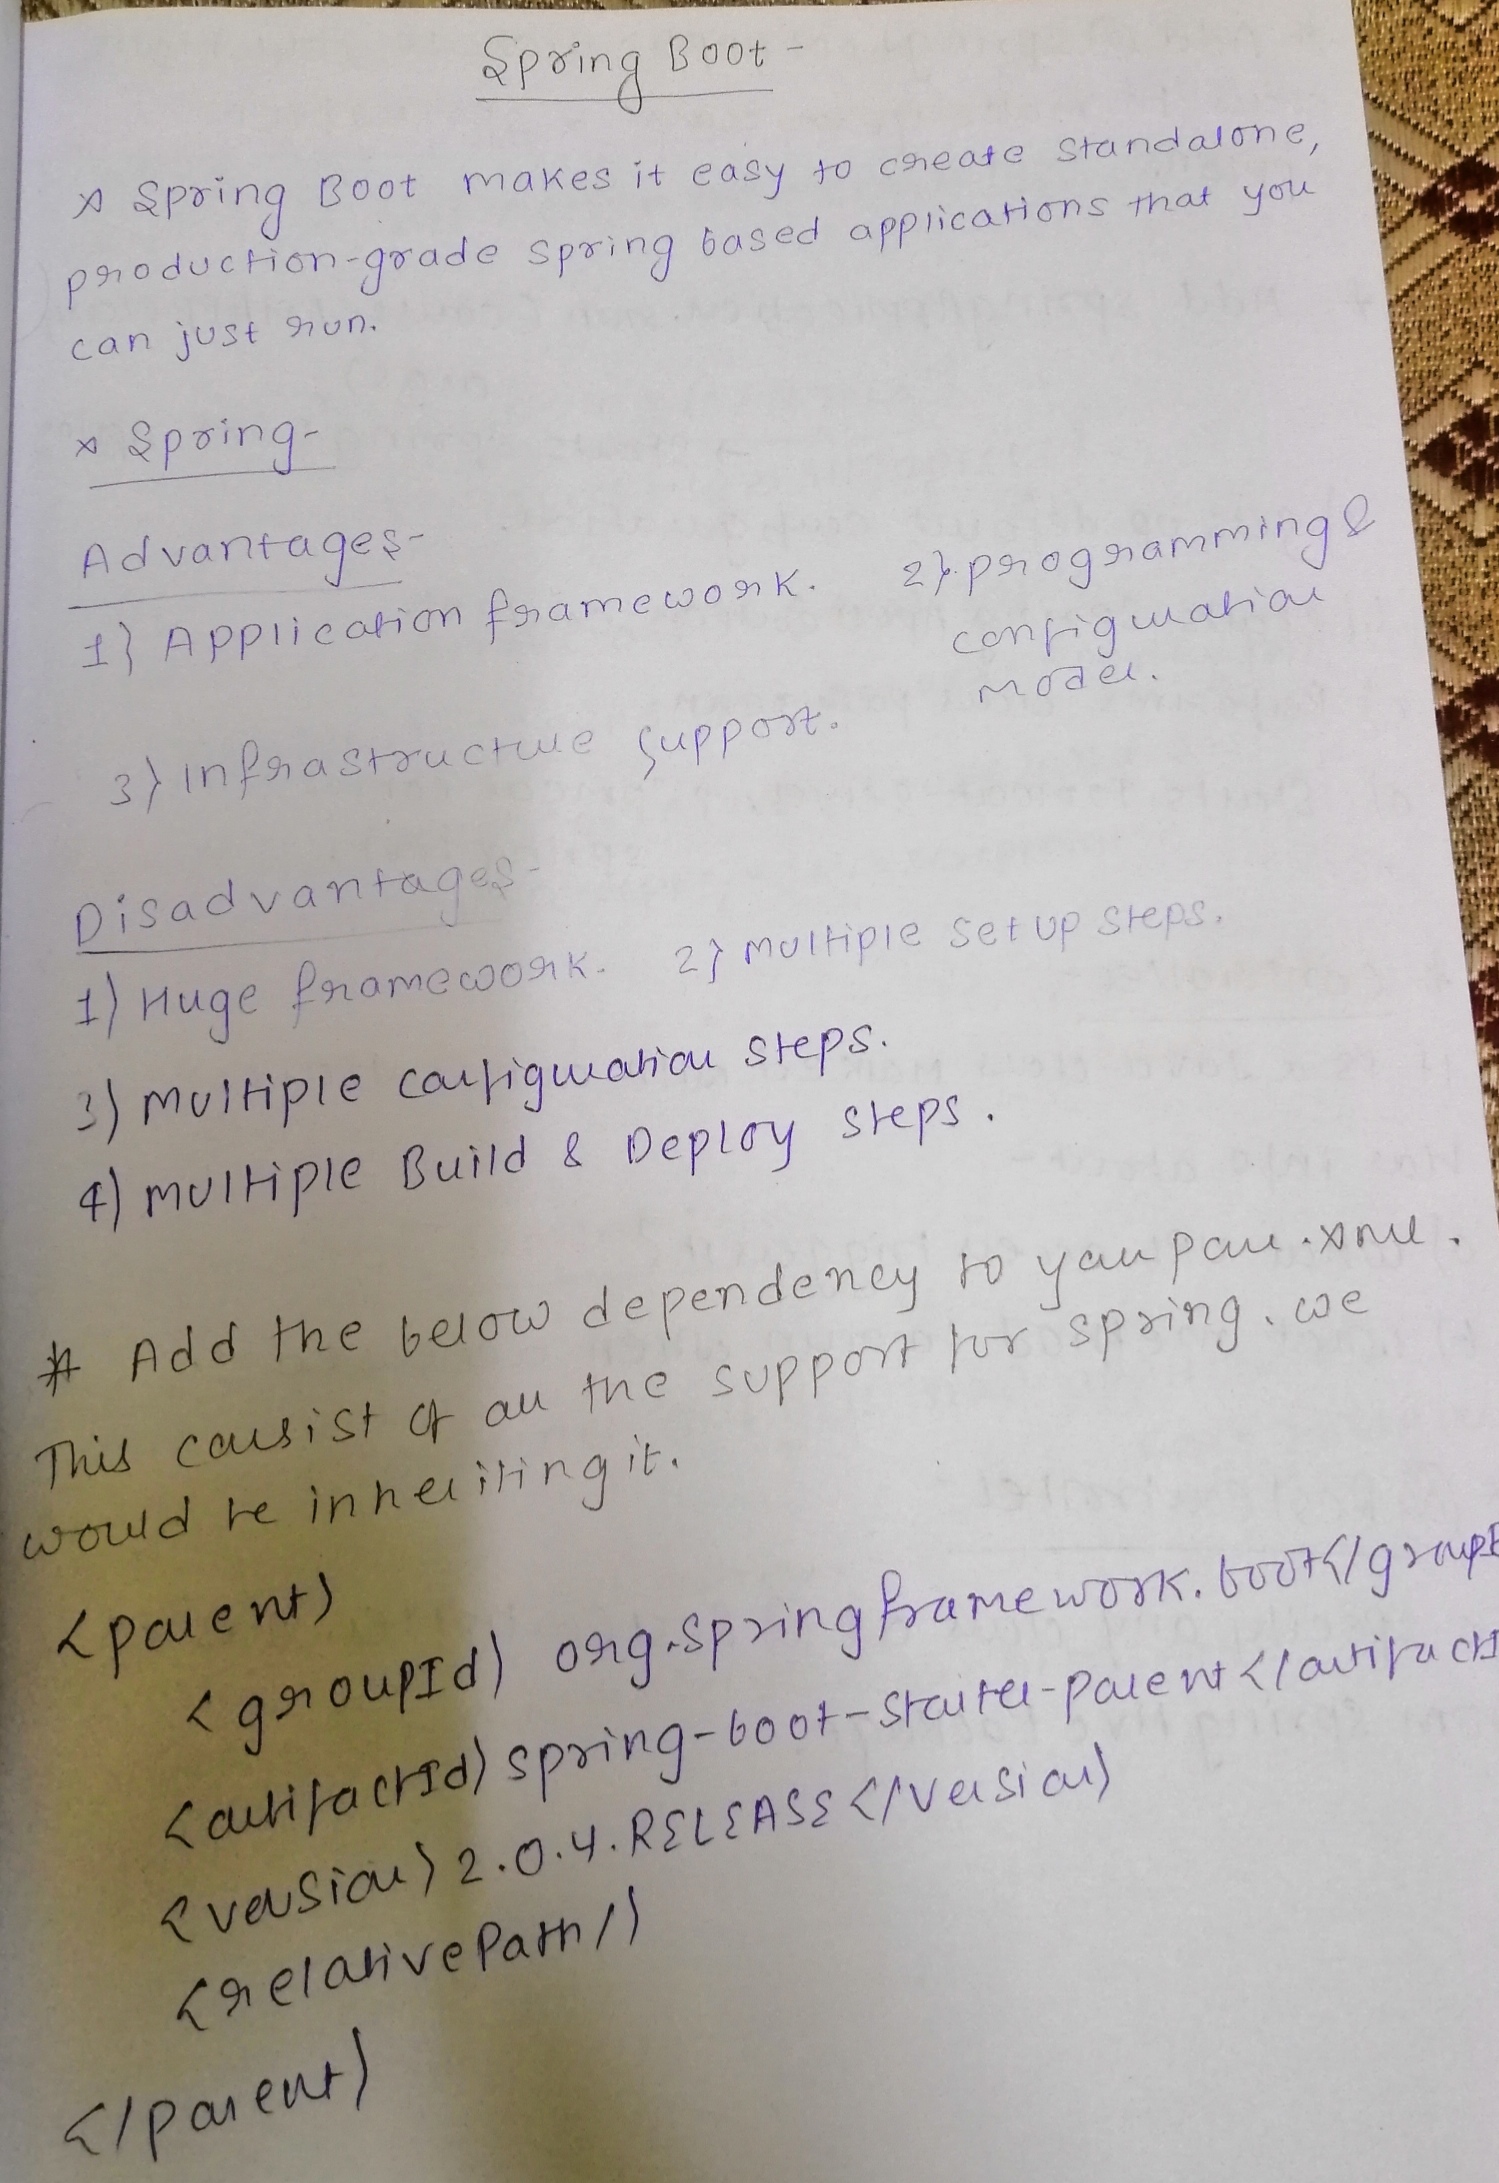 Spring Boot -
* Spring Boot makes it easy to create standalone,
production-grade spring based applications that you
can just run.
* Spring-
Advantages-
1} Application framework. 2} programming &
configuration
model.
3} Infrastructure support.
Disadvantages-
1) Huge framework. 2} Multiple Set up Steps.
3) Multiple configuration Steps.
4) Multiple Build & Deploy steps.
* Add the below dependency to your pom.xml.
This consist of all the support for spring. we
would be inheriting it.
<parent>
<groupId> org.springframework.boot</group
<artifactId> spring-boot-starter-parent </artifactI
<version> 2.0.4.RELEASE </version>
<relativePath/>
</parent>